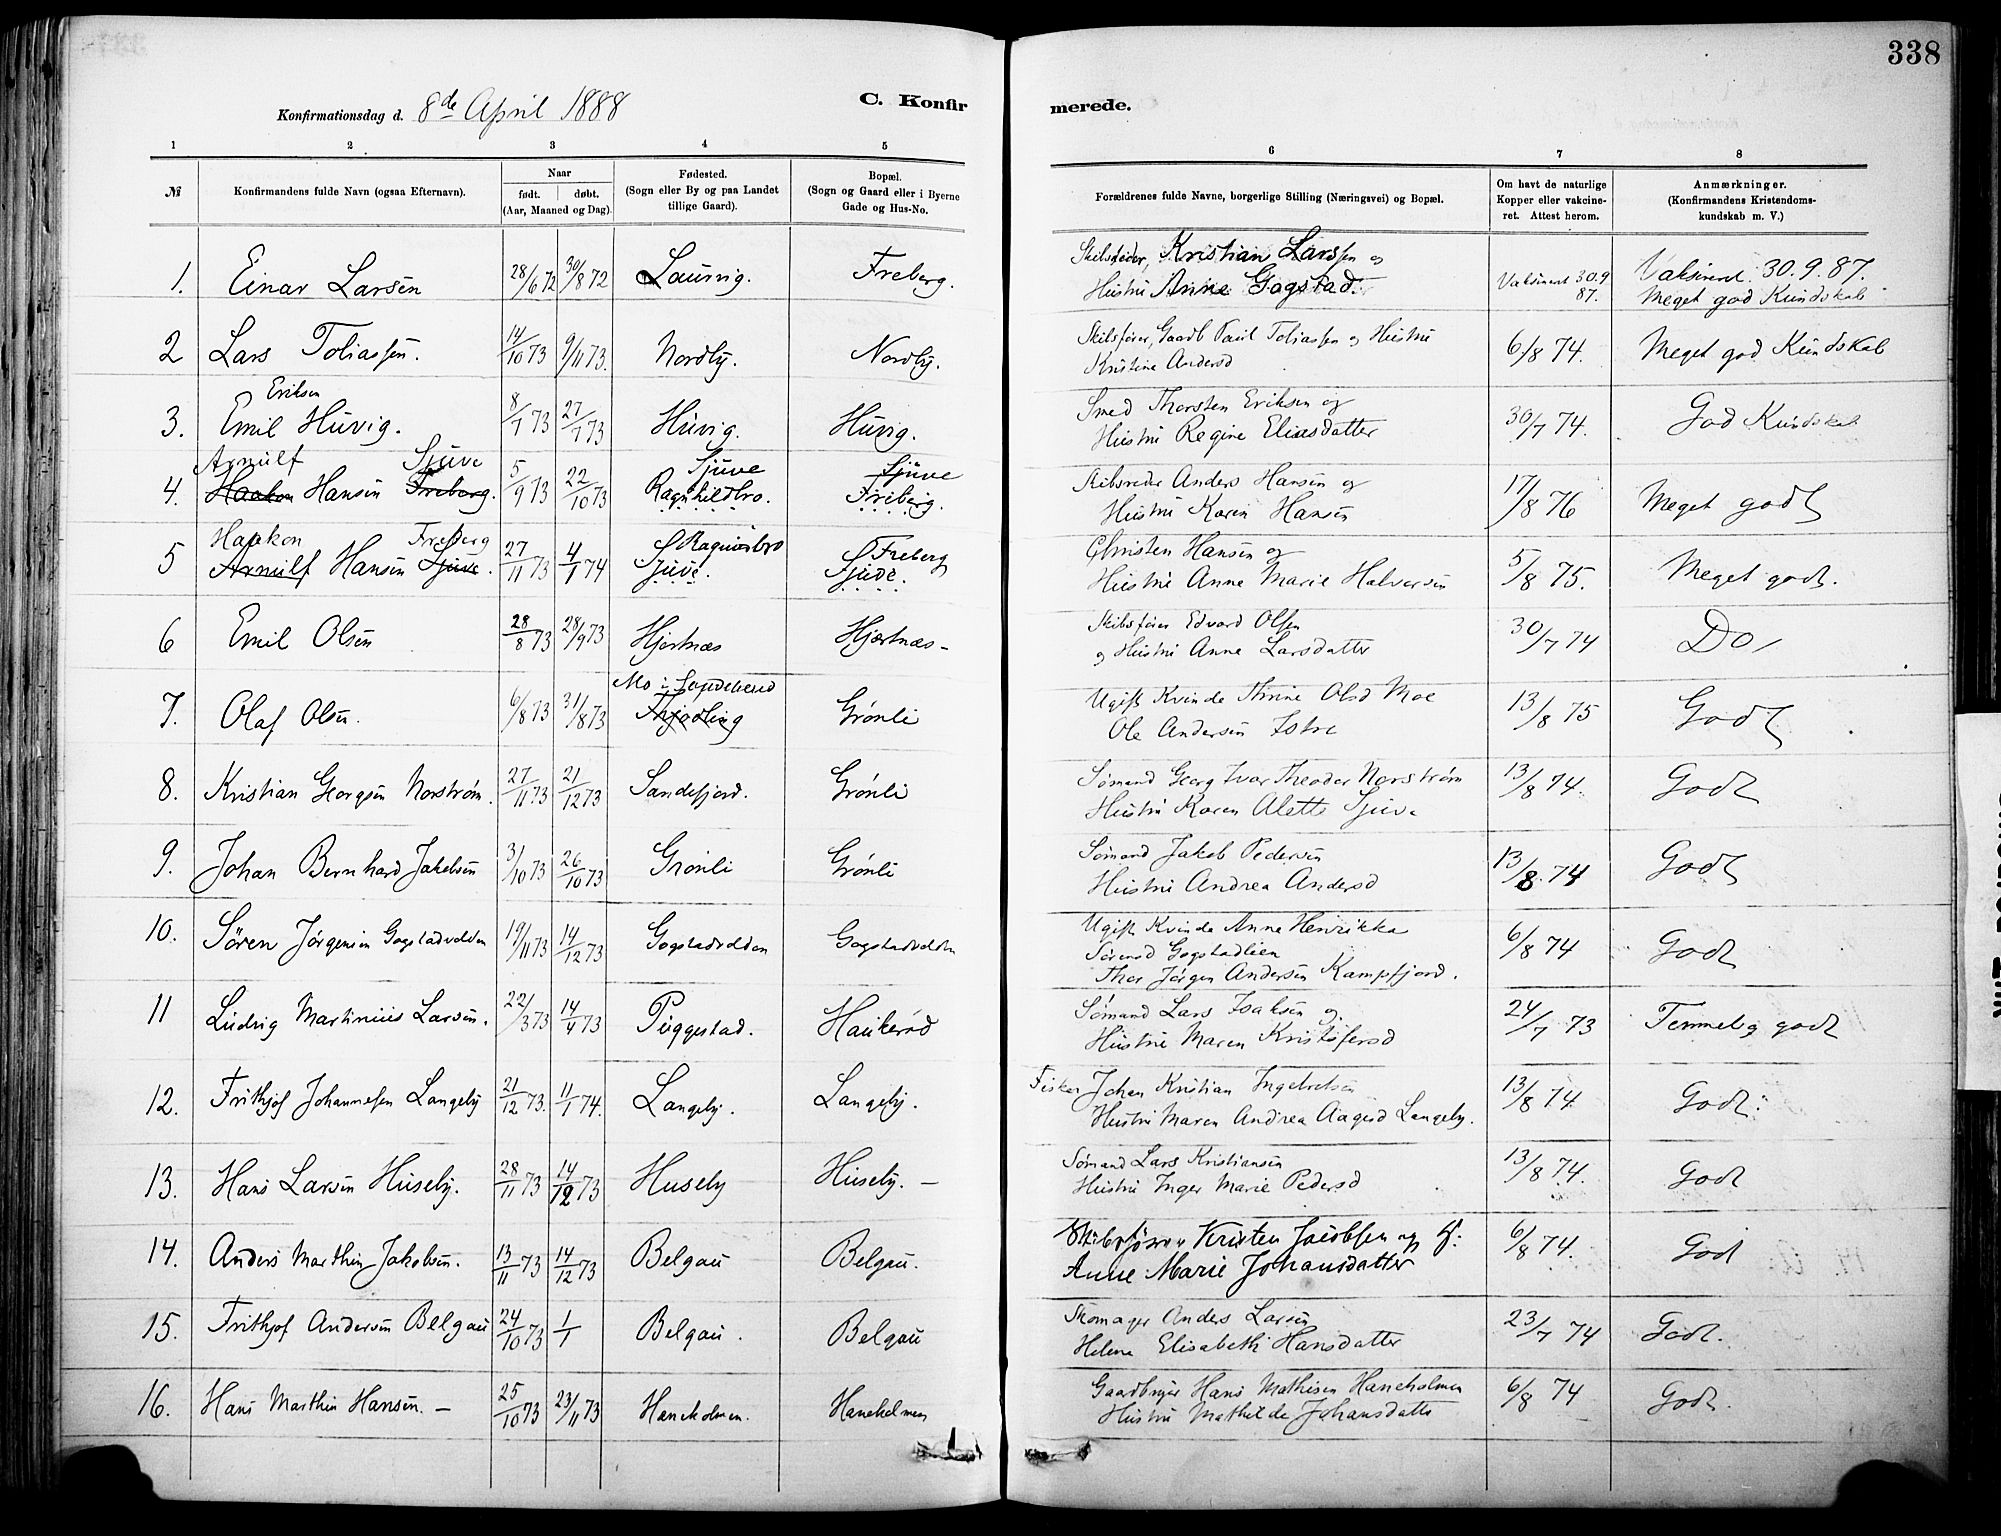 338
Konfirmationsdag d. 8de April 1888
C. Konfir merede.
1 2 3 4 5 6 7 8
№ Konfirmandens fulde Navn (ogsaa Efternavn). Naar født. døbt. (Aar, Maaned og Dag). Fødested. (Sogn eller By og paa Landet tillige Gaard). Bopæl. (Sogn og Gaard eller i Byerne Gade og Hus-No. Forældrenes fulde Navne, borgerlige Stilling (Næringsvei) og Bopæl. Om havt de naturlige Kopper eller vakcineret. Attest herom. Anmærkninger. (Konfirmandens Kristendomskundskab m. V.)
1. Einar Larsen 28/6 72 30/8 72 Laurvig. Freberg. Skibsreder, Kristian Larssen og Vaksineret 30.9 87. Vaksineret 30.9.87.
Hustru Anne Gogstad. Meget god Kundskab
2 Lars Toliassen. 14/10 73 9/11 73. Nordby. Nordby. Skibsfører, Gaardb Paul Toliassen og Hustru 6/8 74. Meget god Kundskab
Kristine Andersd
Eriksen
3. Emil Huvig. 8/1 73 27/7 73 Huvig. Huvig. Smed Thorsten Eriksen og 30/7 74. God Kundskab
Hustru Regine Eliasdatter
Arnulf Sjuve Sjuve Sjuve
4. Haakon Hansen Freberg. 5/9 73 22/10 73 Ragnhildbro. Freberg. Skibsreder Anders Hansen og 17/8 76 Meget godt
Hustru Karen Hansen
Haakon Freberg Freberg
5 Arnulf Hansen Sjuve. 27/11 73 4/1 74 Sjuve. Sjuve. Christen Hansen og 5/8 75. Meget godt.
Hustru Anne Marie Halvorsen
6 Emil Olsen 28/8 73 28/9 73 Hjertnæs Hjertnæs- Skibsfører Edvard Olsen 30/7 74 Do
og Hustru Anne Larsdatter
Mo i Sandeherred
7. Olaf Olsen. 6/8 73 31/8 73 Thjodling Grønli Ugift Kvinde Thrine Olsd Moe 13/8 75 Godt
Ole Andersen Istre
8. Kristian Georgsen Norstrøm. 27/11 73 21/12 73 Sandefjord. Grønli Sømand Georg Ivar Theodor Norstrøm 13/8 74. Godt
Hustru Karen Alette Sjuve
9. Johan Bernhard Jakobsen 3/10 73 26/10 73 Grønli Grønli Sømand Jakob Pedersen 13/8 74 Godt
Hustru Andrea Andersd
10. Søren Jørgensen Gogstadvolden 19/11 73 14/12 73 Gogstadvolden Gogstadvolden Ugift Kvinde Anne Henrikka 6/8 74 Godt
Sørensd Gogstadlien
Thor Jørgen Andersen Kampfjord.
11 Ludvig Martinius Larsen. 22/3 73 14/4 73 Puggestad. Haukerød Sømand Lars Isaksen og 24/7 73 Temmelig godt
Hustru Maren Kristofersd
12. Frithjof Johannesen Langeby 21/12 73. 11/1 74. Langeby. Langeby. Fisker Johan Kristian Ingebretsen 13/8 74 Godt.
Hustru Maren Andrea Aagesd Langeby.
13. Hans Larsen Huseby. 28/11 73 14/12 73 Huseby Huseby. - Sømand Lars Kristiansen 13/8 74. Godt
Hustru Inger Marie Pedersd
14. Anders Marthin Jakobsen. 13/11 73 14/12 73 Belgau Belgau. Skibsfører Kristen Jacobsen og H: 6/8 74. God
Anne Marie Johansdatter
15. Frithjof Andersen Belgau 24/10 73 1/1 Belgau. Belgau Skomager Anders Larsen 23/7 74 Godt.
Helene Elisabeth Hansdatter
16. Hans Marthin Hansen. - 25/10 73 23/11 73 Haneholmen. Haneholmen Gaardbruger Hans Mathisen Haneholmen 6/8 74 Godt.
Hustru Mathilde Johansdatter